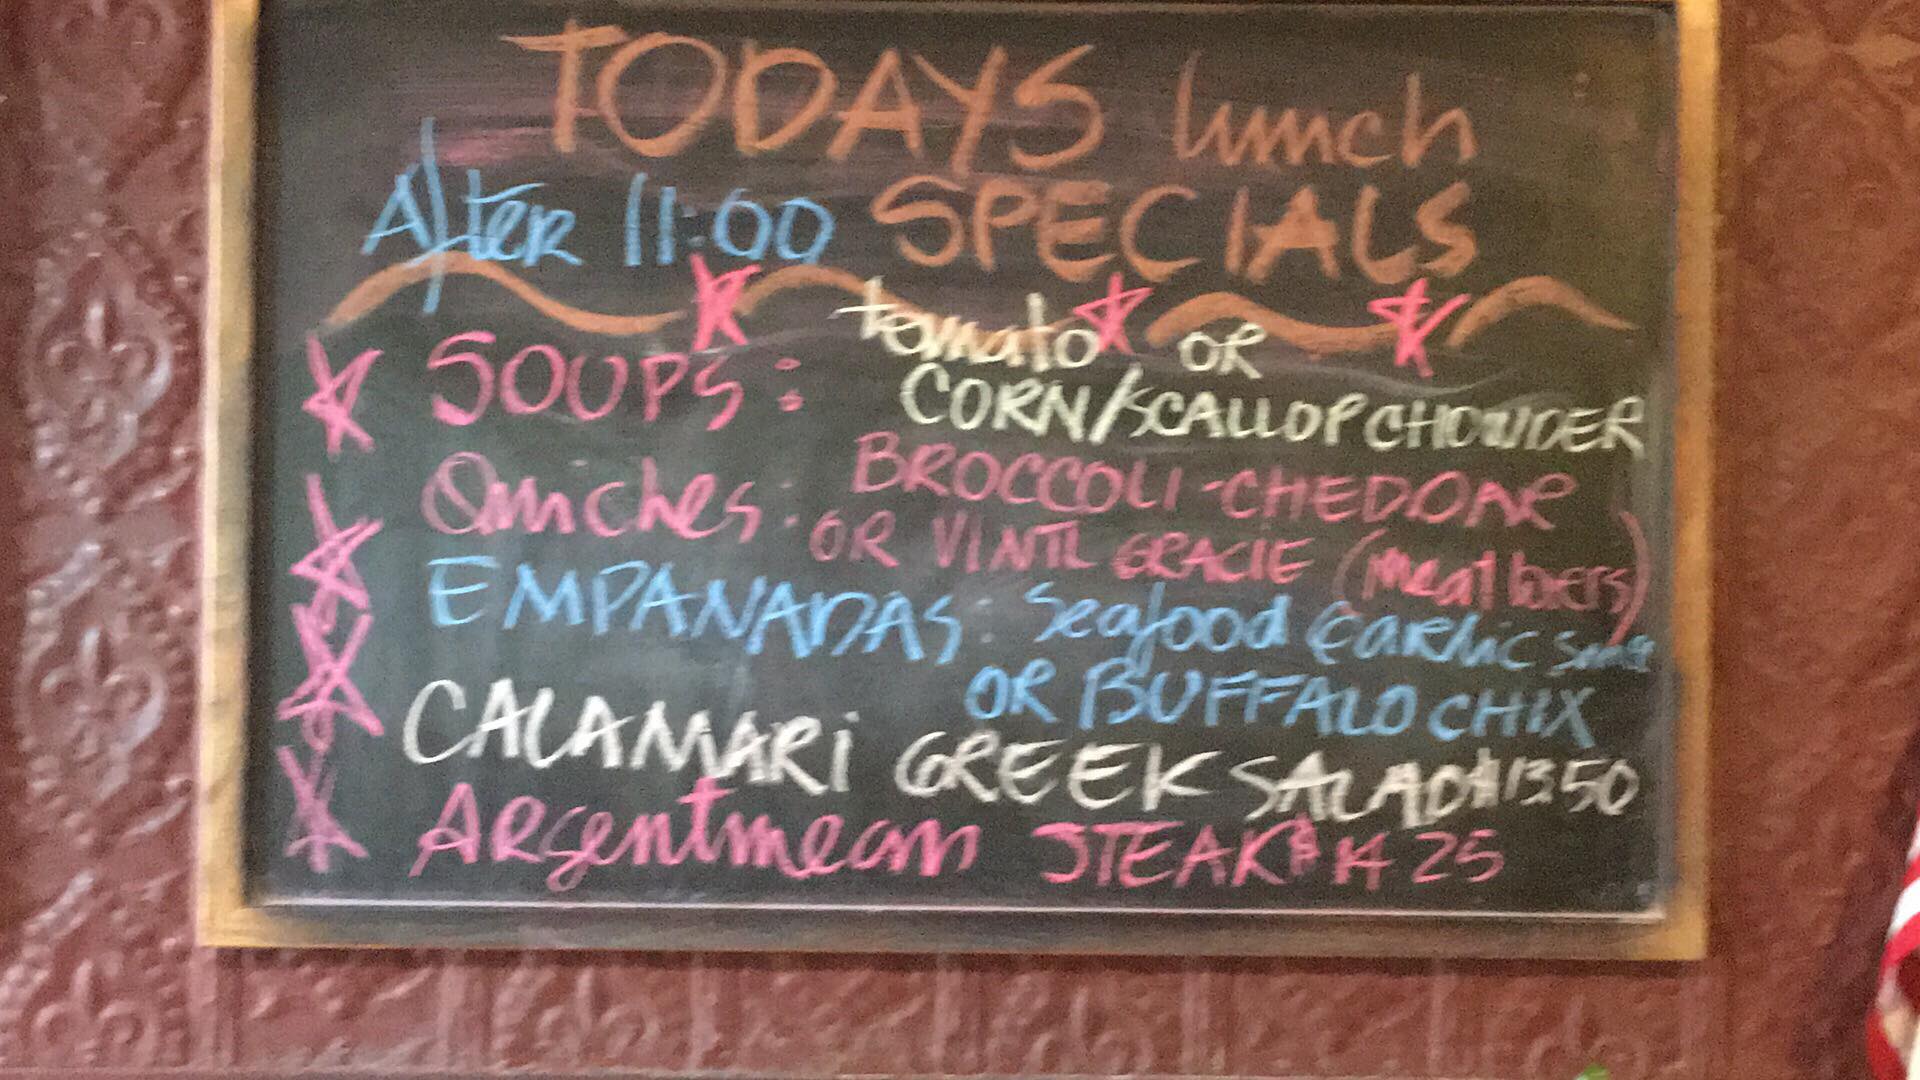 TODAYS lunch
After 11:00 SPECIALS
SOUPS: tomato OR
CORN/SCALLOP CHOWDER
Quiches: BROCCOLI-CHEDDAR
OR GRACIE (meat lovers)
EMPANADAS: Seafood Garlic
OR BUFFALO CHIX
CALAMARI GREEK SALAD $13.50
Argentinean STEAK $14 25